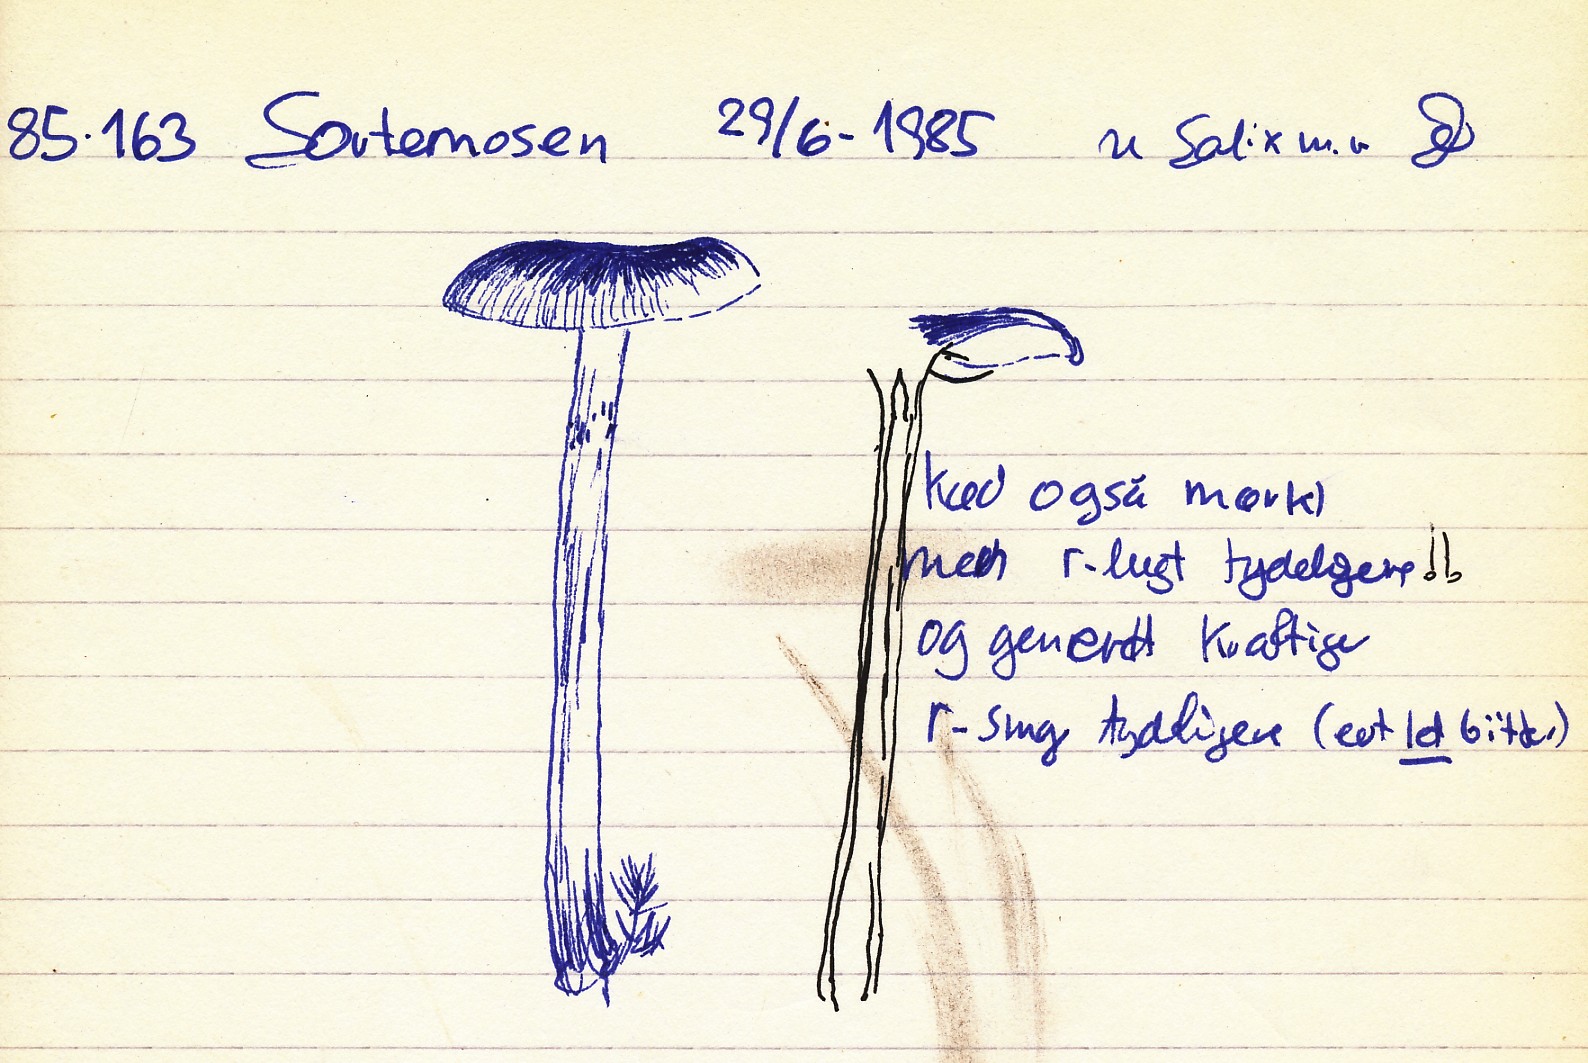 85·163 Sortemosen 29/6-1985 u Salix m.v
kød også mørkt
men r-lugt tydeligere!!
og generelt kraftiger
r-smag tydeligere (evt let bitter)